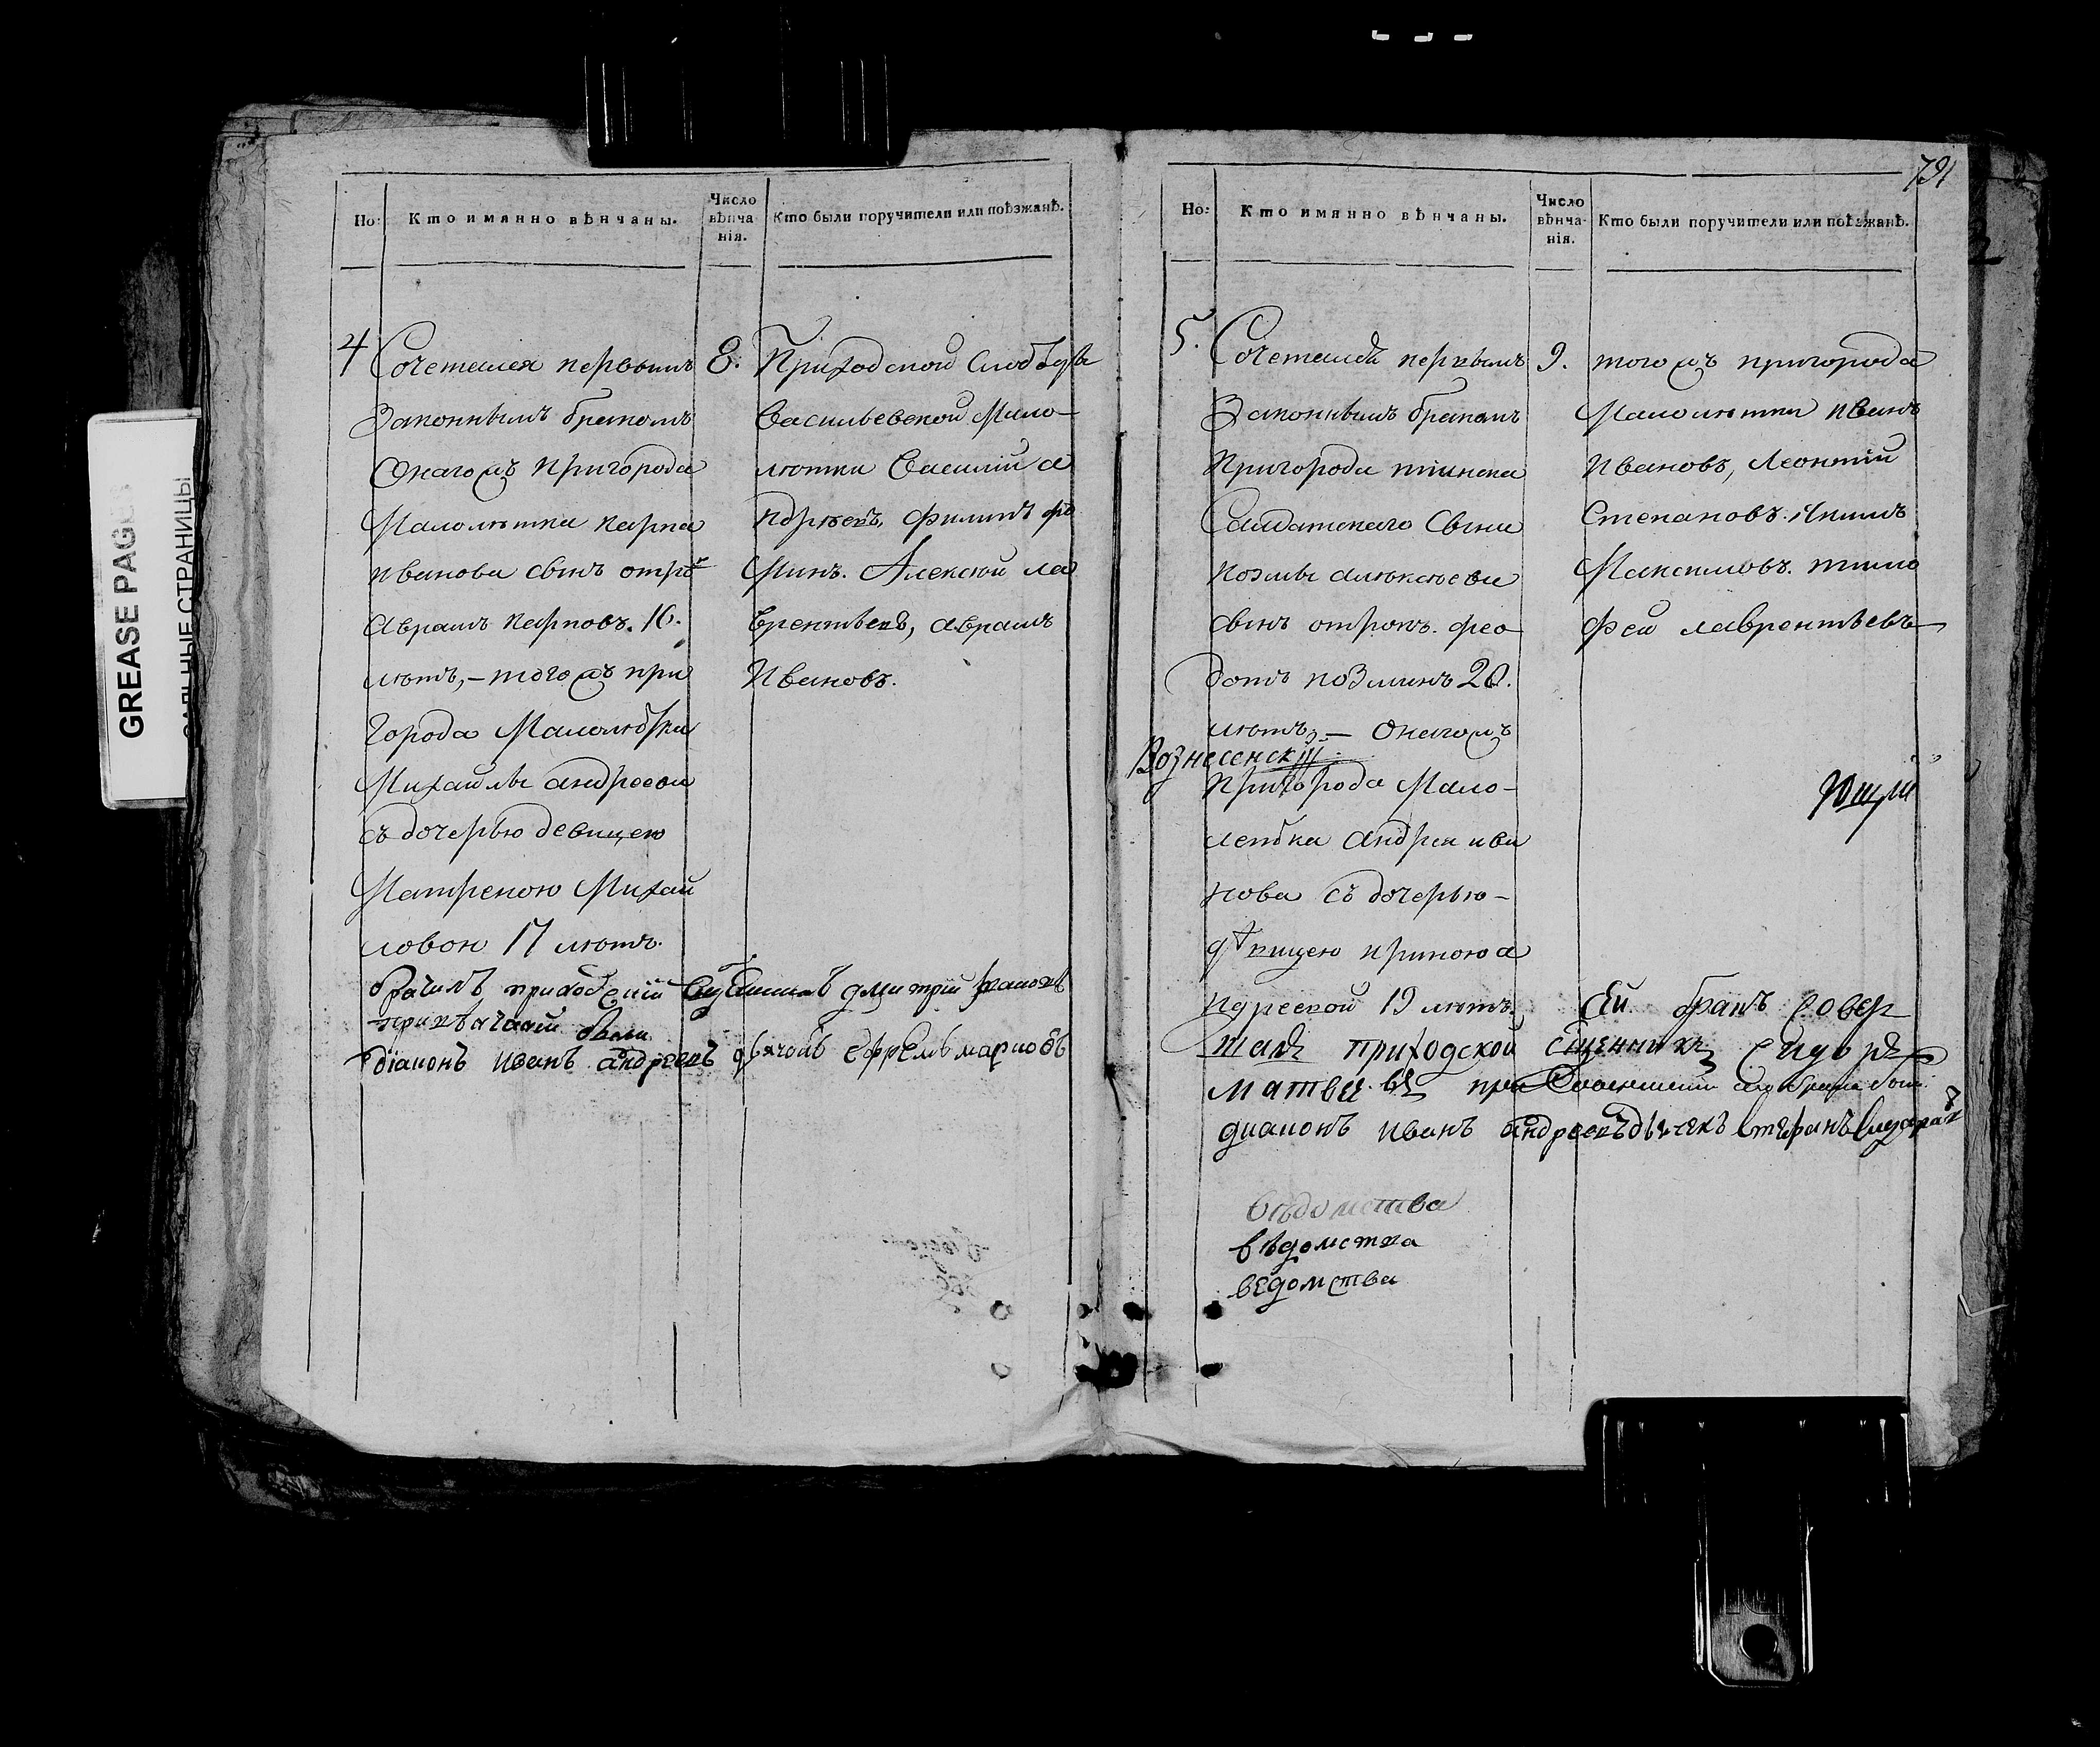 GREASE PAGES
САЛЬНЫЕ СТРАНИЦЫ
Но:
Кто имянно вѣнчаны.
Число вѣнча-
нія.
Кто были поручители или поѣзжанѣ.
4
Сочетался первымъ
Законнымъ бракомъ
Онагожъ Пригорода
Малолѣтка Карпа
Иванова сынъ отрокъ
Аврамъ Карповъ. 16.
лѣтъ, – тогожъ при
города Малолѣтка
Михайлы Андреева
съ дочерью девицею
Матреною Михай
ловой 17 лѣтъ.
8.
Приходской слободы
Васильевской Мало-
лѣтки Василий А
ндрѣевъ, Филипъ Фо
минъ. Алексѣй Ла
врентьевъ, Аврамъ
Ивановъ.
приходский Дмитрій
были
діаконъ Иванъ Андреевъ дьячокъ Ефремъ
791
Но:
Кто имянно вѣнчаны.
Число вѣнча-
нія.
Кто были поручители или поѣзжанѣ.
5.
Сочетался первымъ
Законнымъ бракомъ
Пригорода Тіинска
Салдатскаго сына
Козмы Алѣксѣева
сынъ отрокъ. Фео
дотъ Козминъ 20.
лѣтъ, – Онагожъ
Вознесенскій
Пригорода Мало-
летка Андрея Ива
нова съ дочерью –
дѣвицею Ириною А
ндреевой 19 лѣтъ.
9.
тогожъ пригорода
Малолѣтки Иванъ
Ивановъ, Леонтій
Степановъ. Якимъ
Максимовъ. Тимо
фей Лаврентьевъ
Сей бракъ совер
шалъ приходской сщенникъ Сидоръ
Матвеевъ при сего брака
диаконъ Иванъ Андреевъ дьячекъ Стефанъ
вѣдомства
вѣдомства
ведомства